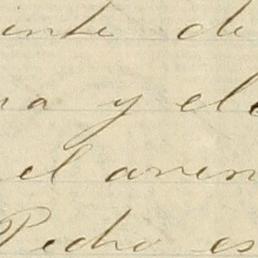 inte de
na y el
el aren
Pedro es